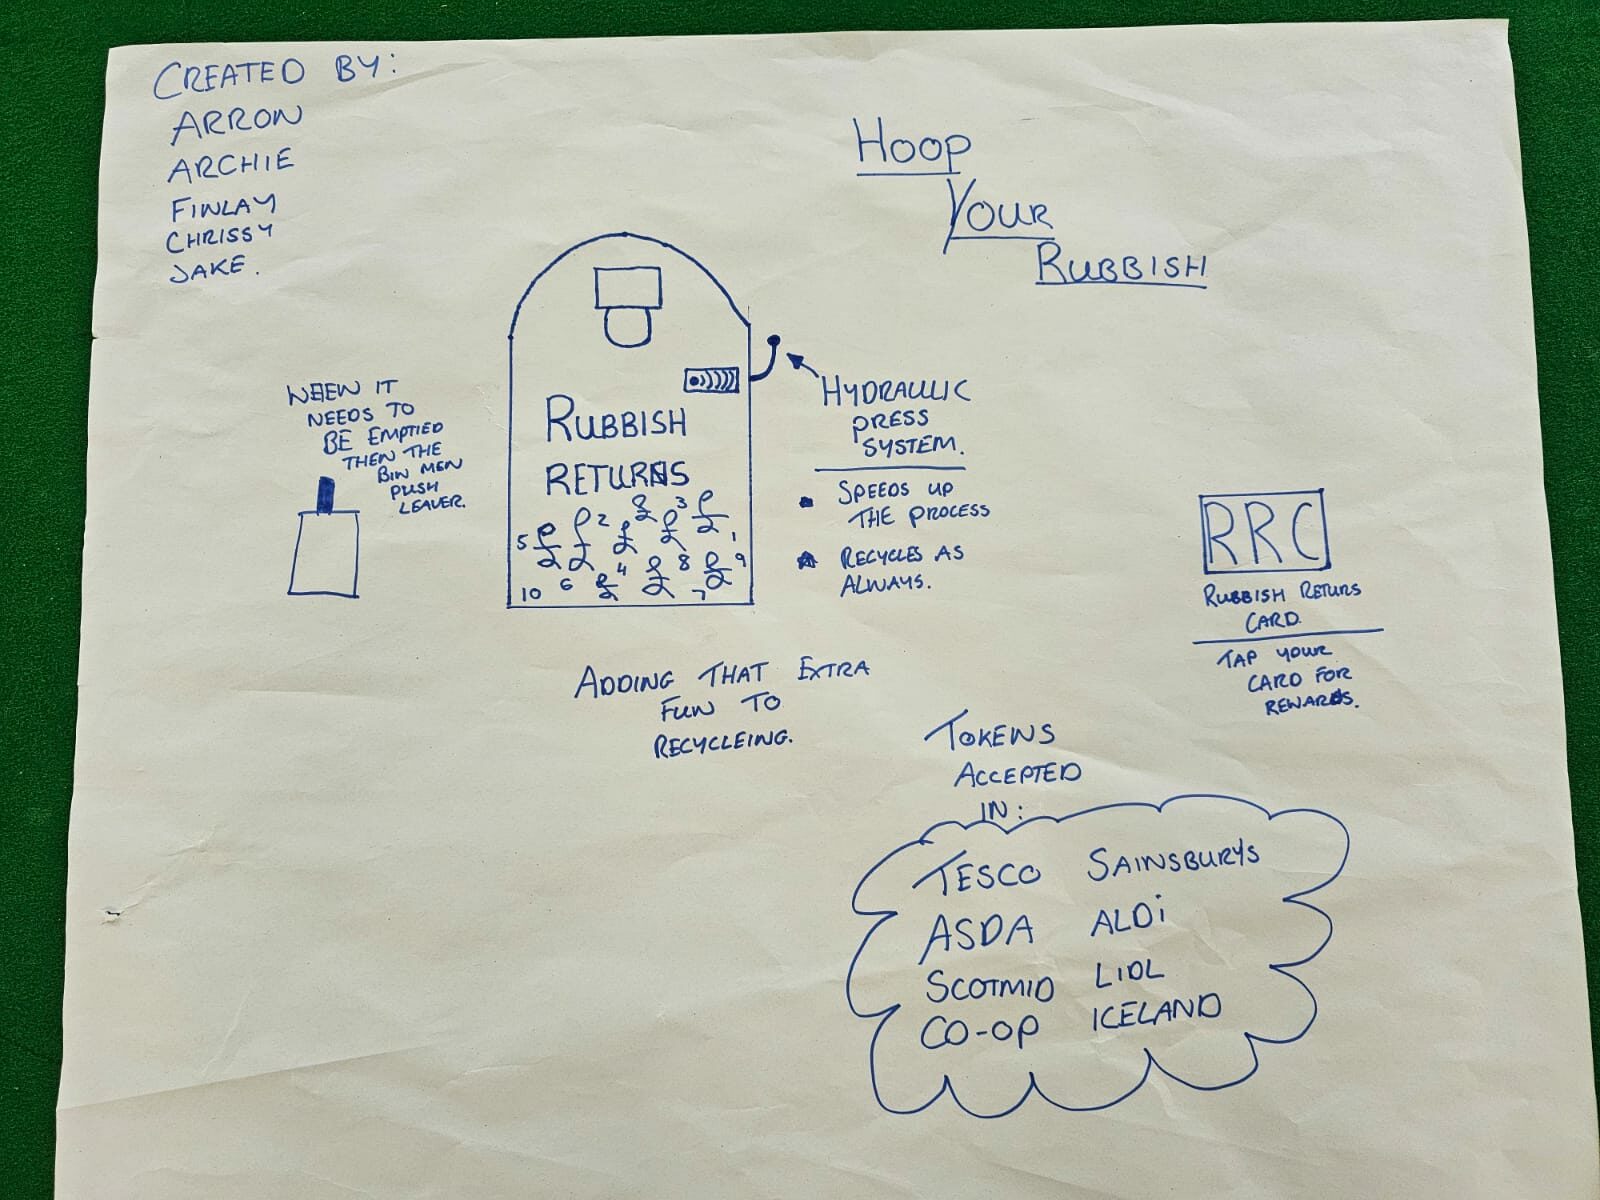 CREATED BY:
ARRON
ARCHIE
FINLAY
CHRISSY
JAKE.
HOOP
YOUR
RUBBISH
WHEN IT
NEEDS TO
BE EMPTIED
THEN THE
BIN MEN
PUSH
LEAVER.
RUBBISH
RETURNS
2 £ 3 £
5 £ £ £ £ 1
10 6 £ 4 £ 8 £ 9
7
HYDRAULIC
PRESS
SYSTEM.
SPEEDS UP
THE PROCESS
RECYCLES AS
ALWAYS.
RRC
RUBBISH RETURS
CARD.
TAP YOUR
CARD FOR
REWARDS.
ADDING THAT EXTRA
FUN TO
RECYCLEING.
TOKENS
ACCEPTED
IN:
TESCO SAINSBURYS
ASDA ALDi
SCOTMID LIDL
CO-OP ICELAND